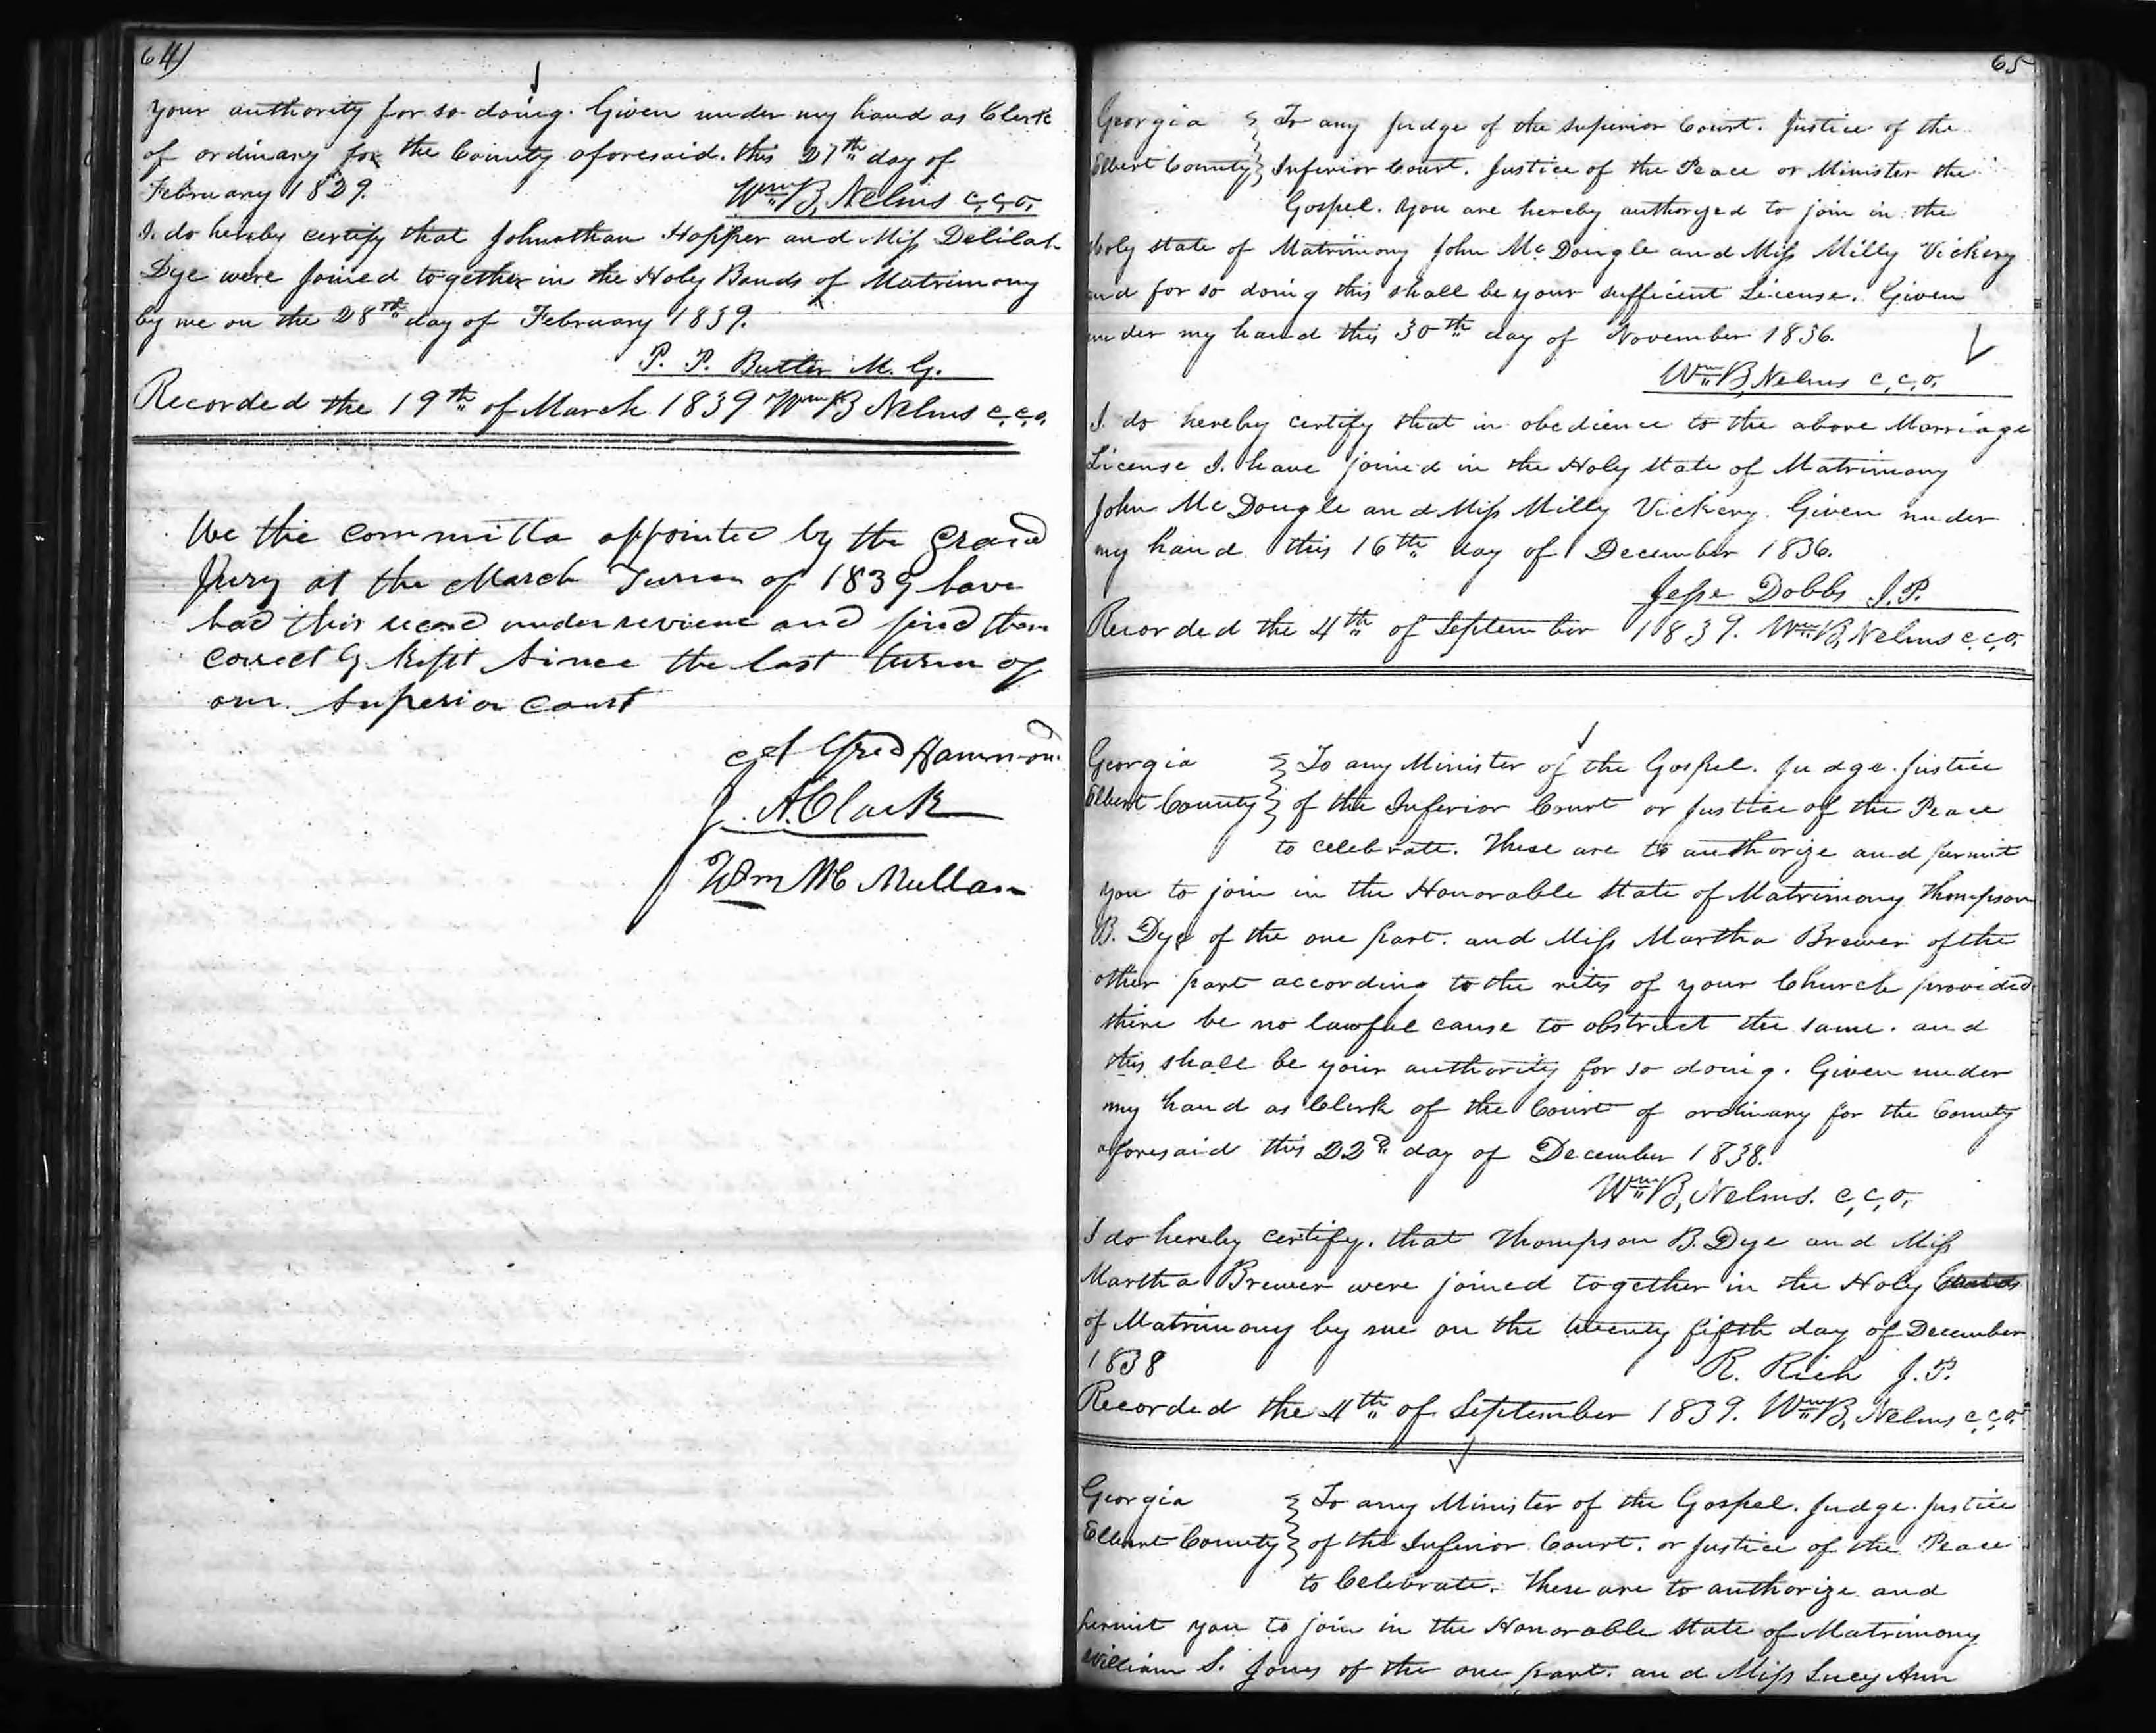 64)
your authority for so doing. Given under my hand as Clerk
of ordinary for the County aforesaid. this 27th day of
February 1839.
Wm B, Nelms c,c,o,
I. do hereby certify that Johnathan Hopper and Miss Delilah
Dye were Joined together in the Holy Bands of Matrimony
by me on the 28th day of February 1839.
P. P. Butler M. G.
Recorded the 19th of March 1839 Wm B Nelms c,c,o,
We the committa appointed by the Grand
Jury at the March Turm of 1839 have
had this record under reviene and find them
correctly kept since the last turm of
our. Superior Court
Alfred Hammond
J. A. Clark
Wm Mc Mullan
65
Georgia To any Judge of the Superior Court. Justice of the
Elbert County Inferior Court. Justice of the Peace or Minister the
Gospel. You are hereby authorized to join in the
Holy state of Matrimony John Mc Dougle and Miss Milly Vickery
and for so doing this shall be your sufficient License. Given
under my hand this 30th day of November 1836.
Wm B, Nelms c,c,o,
I. do hereby certify that in obedience to the above Marriage
License I. have joined in the Holy state of Matrimony
John Mc Dougle and Miss Milly Vickery. Given under
my hand this 16th day of December 1836.
Jesse Dobbs J.P.
Recorded the 4th of September 1839. Wm B, Nelms c,c,o,
Georgia To any Minister of the Gospel. Judge. Justice
Elbert County of the Inferior Court or Justice of the Peace
to celebrate. These are to authorize and permit
you to join in the Honorable State of Matrimony Thompson
B. Dye of the one part. and Miss Martha Brewer of the
other part according to the rites of your Church provided
there be no lawful cause to obstruct the same. and
this shall be your authority for so doing. Given under
my hand as Clerk of the Court of ordinary for the County
aforesaid this 22d day of December 1838.
Wm B, Nelms. c,c,o,
I do hereby certify. that Thompson B. Dye and Miss
Martha Brewer were joined together in the Holy
of Matrimony by me on the twenty fifth day of December
1838 R. Rich J.P.
Recorded the 4th of September 1839. Wm B, Nelms c,c,o,
Georgia To any Minister of the Gospel. Judge. Justice
Elbert County of the Inferior Court. or Justice of the Peace
to Celebrate. These are to authorize and
permit you to join in the Honorable State of Matrimony
William S. Jones of the one part. and Miss Lucy Ann